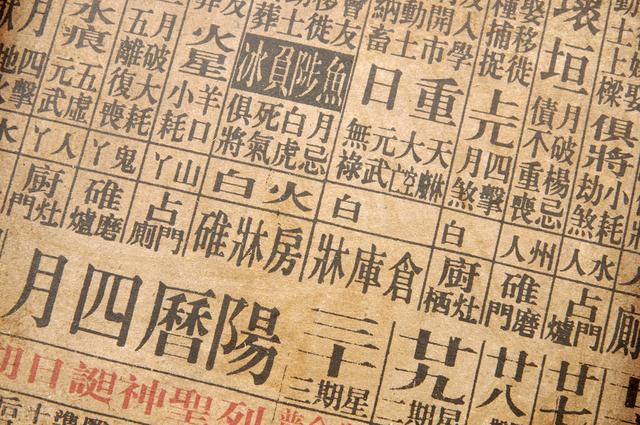 娶移徙
種捕捉
人學
開市
動土
納畜
友
移徙
土
葬
壞垣
俱將
小耗
劫煞
月破
楊忌
債不
重喪
上元
四擊
月煞
重日
天
大空
元武
無祿
魚陟負冰
月忌
白虎
死氣
俱將
火星
羊口
小耗
月破
大耗
五離
復喪
水痕
五虛
元武
月
四擊
地火
水人
州人
白
白
火白
山丫
鬼丫
人丫
水
廁
占門爐
碓磨門
廚灶栖
倉庫牀
房牀碓
占門廁
碓磨爐
廚灶門
廿七
廿八
廿九
星期二
三十
星期三
陽曆四月
列聖神誕日期